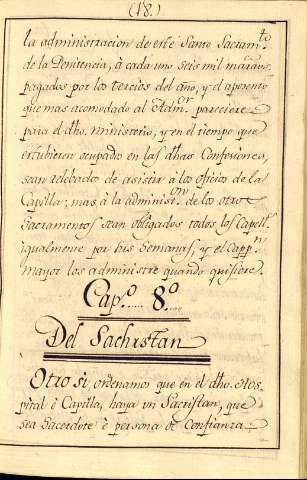 (18.)
la administracion de este Santo Sacram.to
de la Penitencia, à cada uno seis mil maravs.
pagados por los tercios del año, y el aposento
que mas acomodado al Adm.or pareciere
para el dho. ministerio, y en el tiempo que
estubieren ocupado en las dhas Confesiones,
sean relebados de asistir à los oficios de la
Capilla; mas à la administ.on de los otros
Sacramentos sean obligados todos los Capell.s
igualmente por sus Semanas, y el Capp.n
mayor los administre quando quisiere.
Cap.o 8.o
Del Sachristan
Otro si, ordenamos que en el dho. Hos-
pital è Capilla, haya un Sacristan, que
sea Sacerdote è persona de Confianza